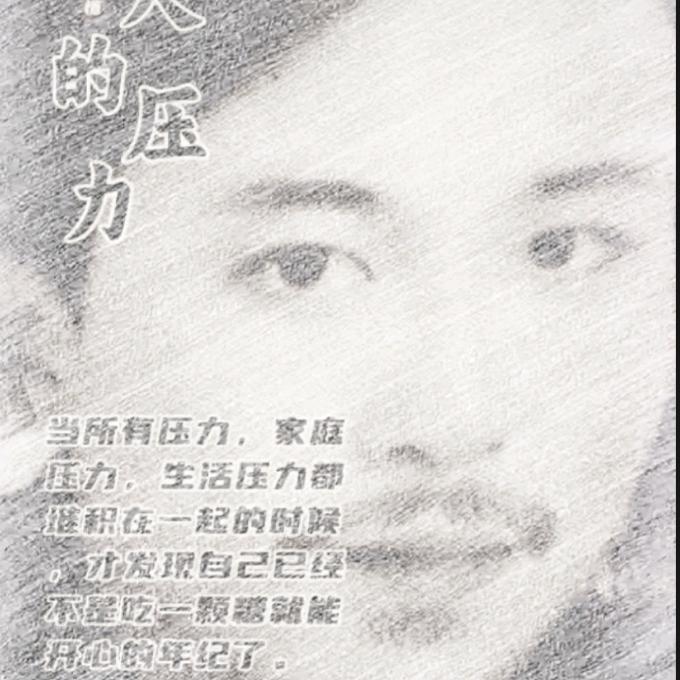 人的压力
当所有压力，家庭
压力，生活压力都
堆积在一起的时候
，才发现自己已经
不是吃一颗糖就能
开心的年纪了。